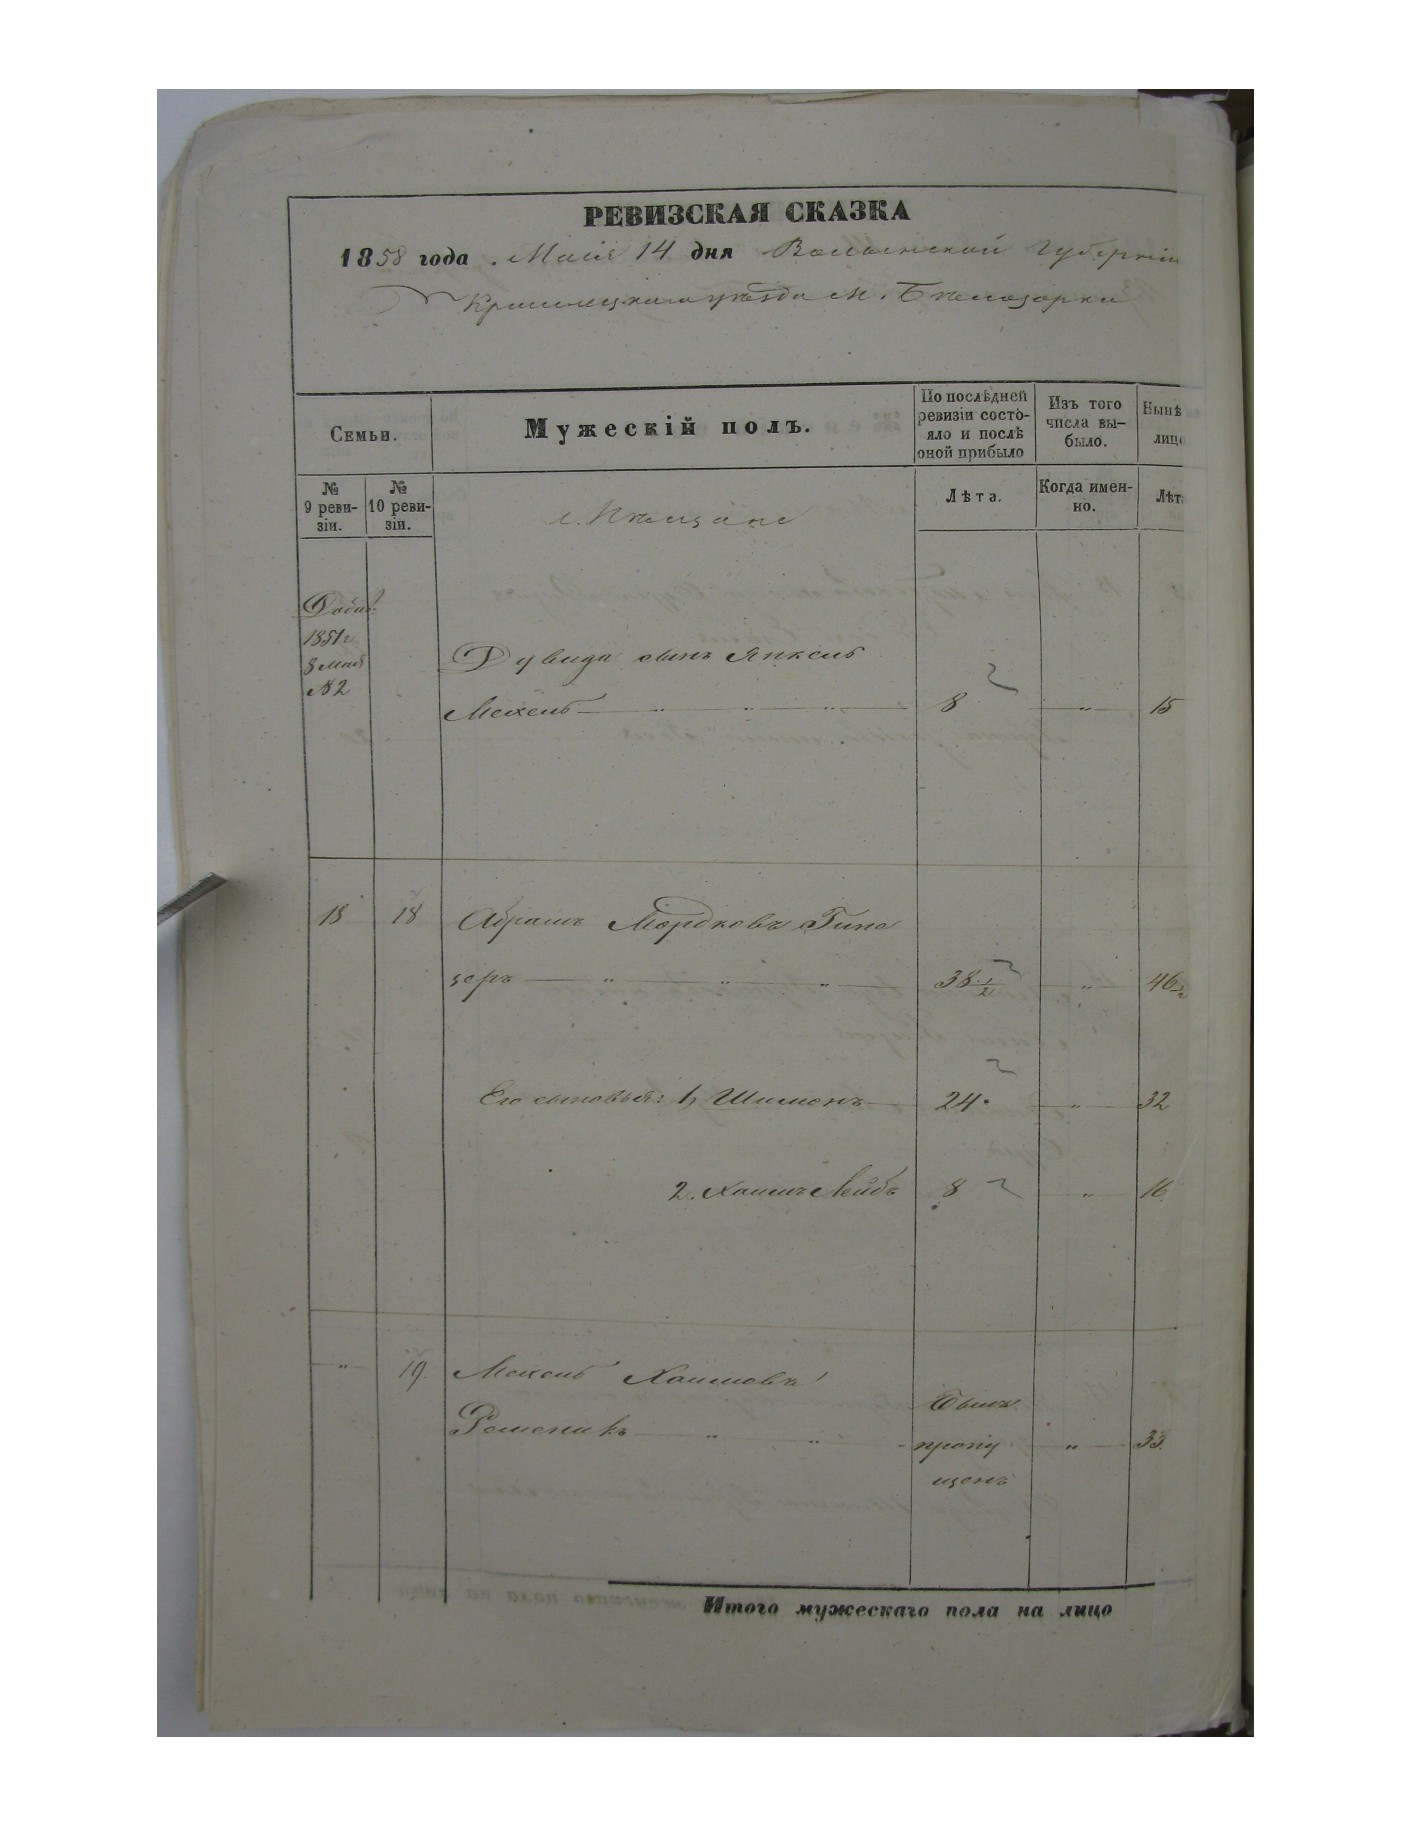 РЕВИЗСКАЯ СКАЗКА
1858 года. Маія 14 дня Волынской Губерніи
Кременецкаго уѣзда м. Бѣлозорки
Семьи.
Мужескій полъ.
По послѣдней ревизіи состояло и послѣ оной прибыло
Изъ того числа выбыло.
Нынѣ лицо
№ 9 ревизіи.
№ 10 ревизіи.
Мѣщане
Лѣта.
Когда именно.
Лѣта
Добав.
1851 г
8 Мая
№ 2
Дувида сынъ Янкель
Мехель — " — " — " — 8 — " — 15
18 18 Абрамъ Мордковъ Гинс
зеръ — " — " — " — 38 1/2 — " — 46 1/2
Его сыновья: 1, Шимонъ — 24. — " — 32
2. Хаимъ Лейбъ 8 — " — 16
" 19. Мехель Хаимовъ
Ременикъ — " — " — Былъ пропущенъ — " — 33.
Итого мужескаго пола на лицо